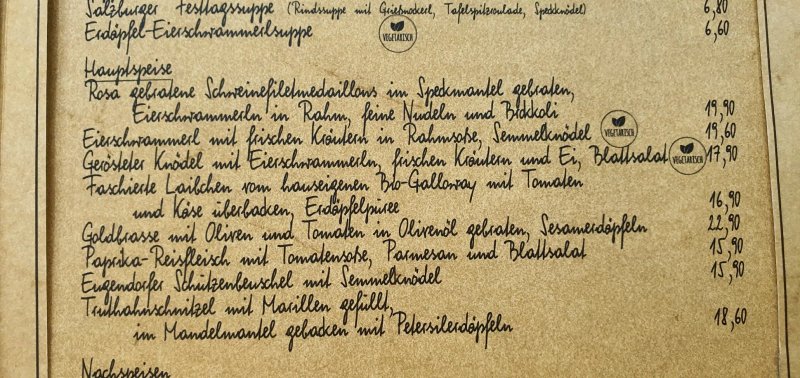 Salzburger Festtagssuppe (Rindssuppe mit Grießnockerl, Tafelspitzroulade, Speckknödel) 6,80
Erdäpfel-Eierschwammerlsuppe VEGETARISCH 6,60
Hauptspeise
Rosa gebratene Schweinefiletmedaillons im Speckmantel gebraten,
Eierschwammerln in Rahm, feine Nudeln und Brokkoli 19,90
Eierschwammerl mit frischen Kräutern in Rahmsoße, Semmelknödel VEGETARISCH 19,60
Gerösteter Knödel mit Eierschwammerln, frischen Kräutern und Ei, Blattsalat VEGETARISCH 17,90
Faschierte Laibchen vom hauseigenen Bio-Galloway mit Tomaten
und Käse überbacken, Erdäpfelpüree 16,90
Goldbrasse mit Oliven und Tomaten in Olivenöl gebraten, Sesamerdäpfeln 22,90
Paprika-Reisfleisch mit Tomatensoße, Parmesan und Blattsalat 15,90
Eugendorfer Schützenbeuschel mit Semmelknödel 15,90
Truthahnschnitzel mit Marillen gefüllt,
im Mandelmantel gebacken mit Petersilerdäpfeln 18,60
Nachspeisen